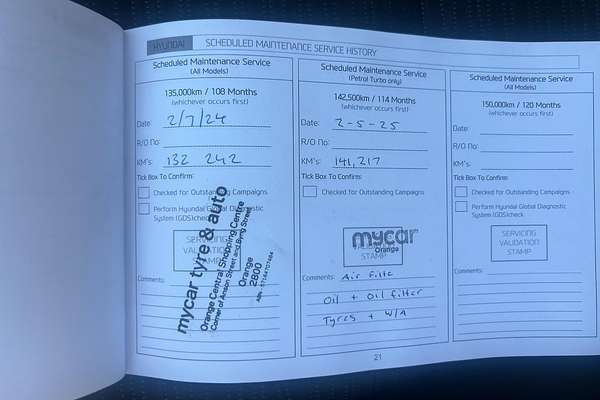 HYUNDAI SCHEDULED MAINTENANCE SERVICE HISTORY
Scheduled Maintenance Service
(All Models)
135,000km / 108 Months
(whichever occurs first)
Date: 2/7/24
R/O No:
KM's: 132 242
Tick Box To Confirm:
Checked for Outstanding Campaigns
Perform Hyundai Global Diagnostic
System (GDS)check
SERVICING
VALIDATION
STAMP
mycar tyre & auto
Orange Central Shopping Centre
Corner of Anson Street and Byng Street
Orange
2800
Comments:
Scheduled Maintenance Service
(Petrol Turbo only)
142,500km / 114 Months
(whichever occurs first)
Date: 2-5-25
R/O No:
KM's: 141,217
Tick Box To Confirm:
Checked for Outstanding Campaigns
mycar
Orange
STAMP
Comments: Air filte
Oil + Oil filter
Tyres + W/A
21
Scheduled Maintenance Service
(All Models)
150,000km / 120 Months
(whichever occurs first)
Date:
R/O No:
KM's:
Tick Box To Confirm:
Checked for Outstanding Campaigns
Perform Hyundai Global Diagnostic
System (GDS)check
SERVICING
VALIDATION
STAMP
Comments: